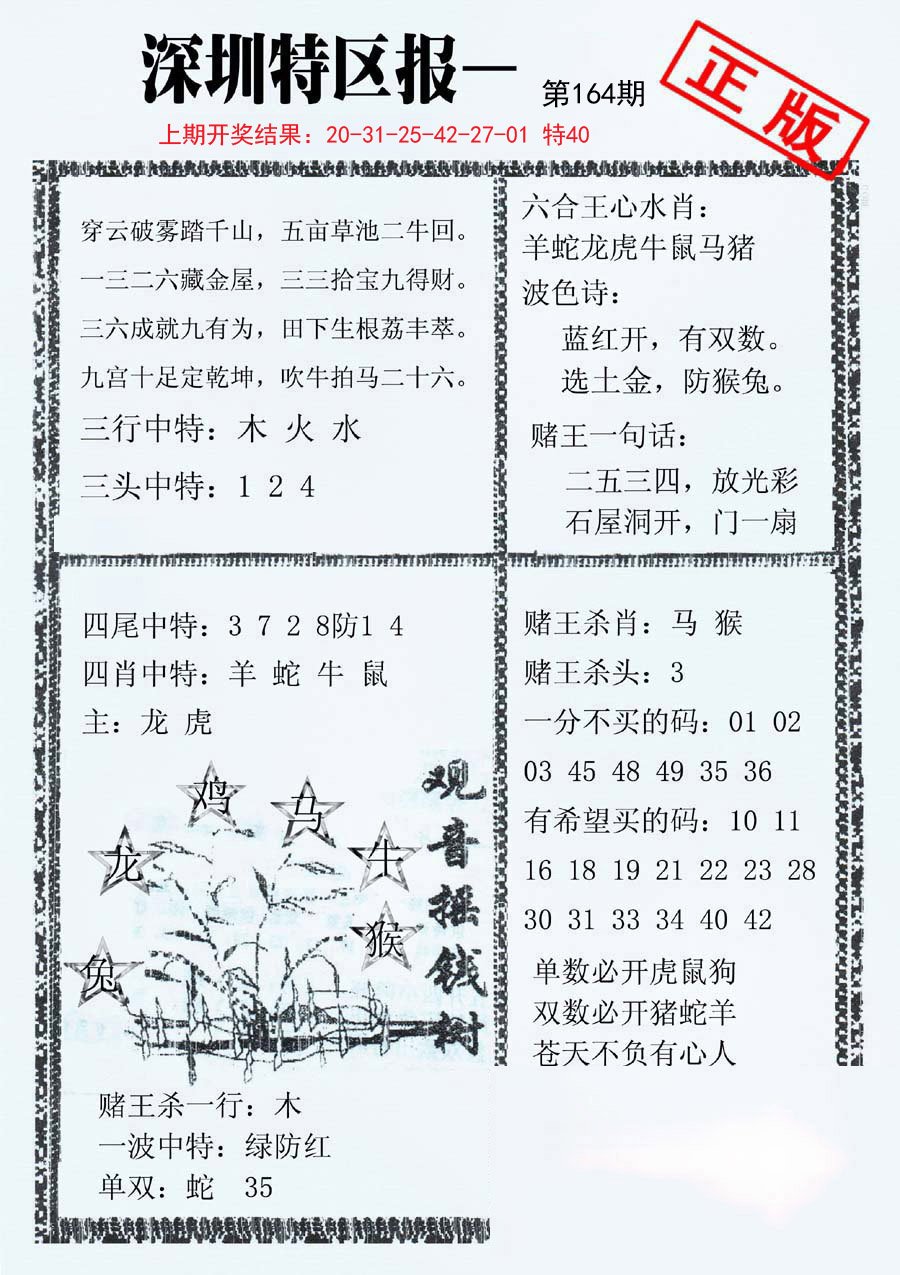 深圳特区报一
第164期
正版
上期开奖结果：20-31-25-42-27-01 特40
穿云破雾踏千山，五亩草池二牛回。
一三二六藏金屋，三三拾宝九得财。
三六成就九有为，田下生根荔丰萃。
九宫十足定乾坤，吹牛拍马二十六。
三行中特：木 火 水
三头中特：1 2 4
六合王心水肖：
羊蛇龙虎牛鼠马猪
波色诗：
蓝红开，有双数。
选土金，防猴兔。
赌王一句话：
二五三四，放光彩
石屋洞开，门一扇
四尾中特：3 7 2 8防1 4
四肖中特：羊 蛇 牛 鼠
主：龙 虎
鸡
马
龙
牛
猴
兔
观音摇钱树
赌王杀一行：木
一波中特：绿防红
单双：蛇 35
赌王杀肖：马 猴
赌王杀头：3
一分不买的码：01 02
03 45 48 49 35 36
有希望买的码：10 11
16 18 19 21 22 23 28
30 31 33 34 40 42
单数必开虎鼠狗
双数必开猪蛇羊
苍天不负有心人